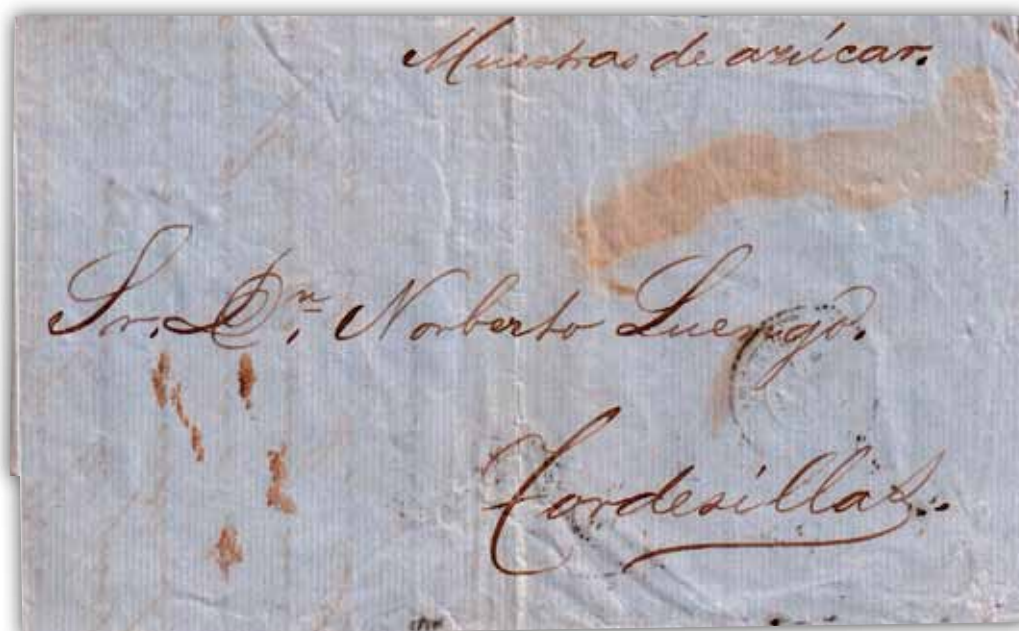 Muestras de azúcar.
Sr. Dn. Norberto Luengo.
Tordesillas.